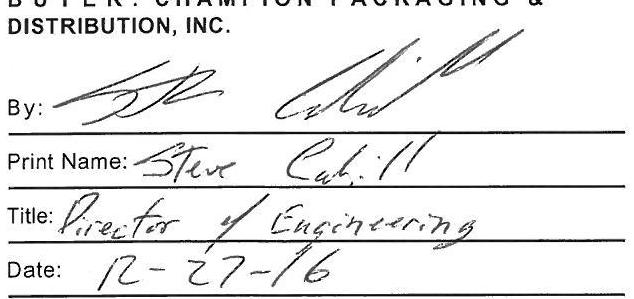 BUYER: CHAMPION PACKAGING &
DISTRIBUTION, INC.
By: Steve Cahill
Print Name: Steve Cahill
Title: Director of Engineering
Date: 12-27-16